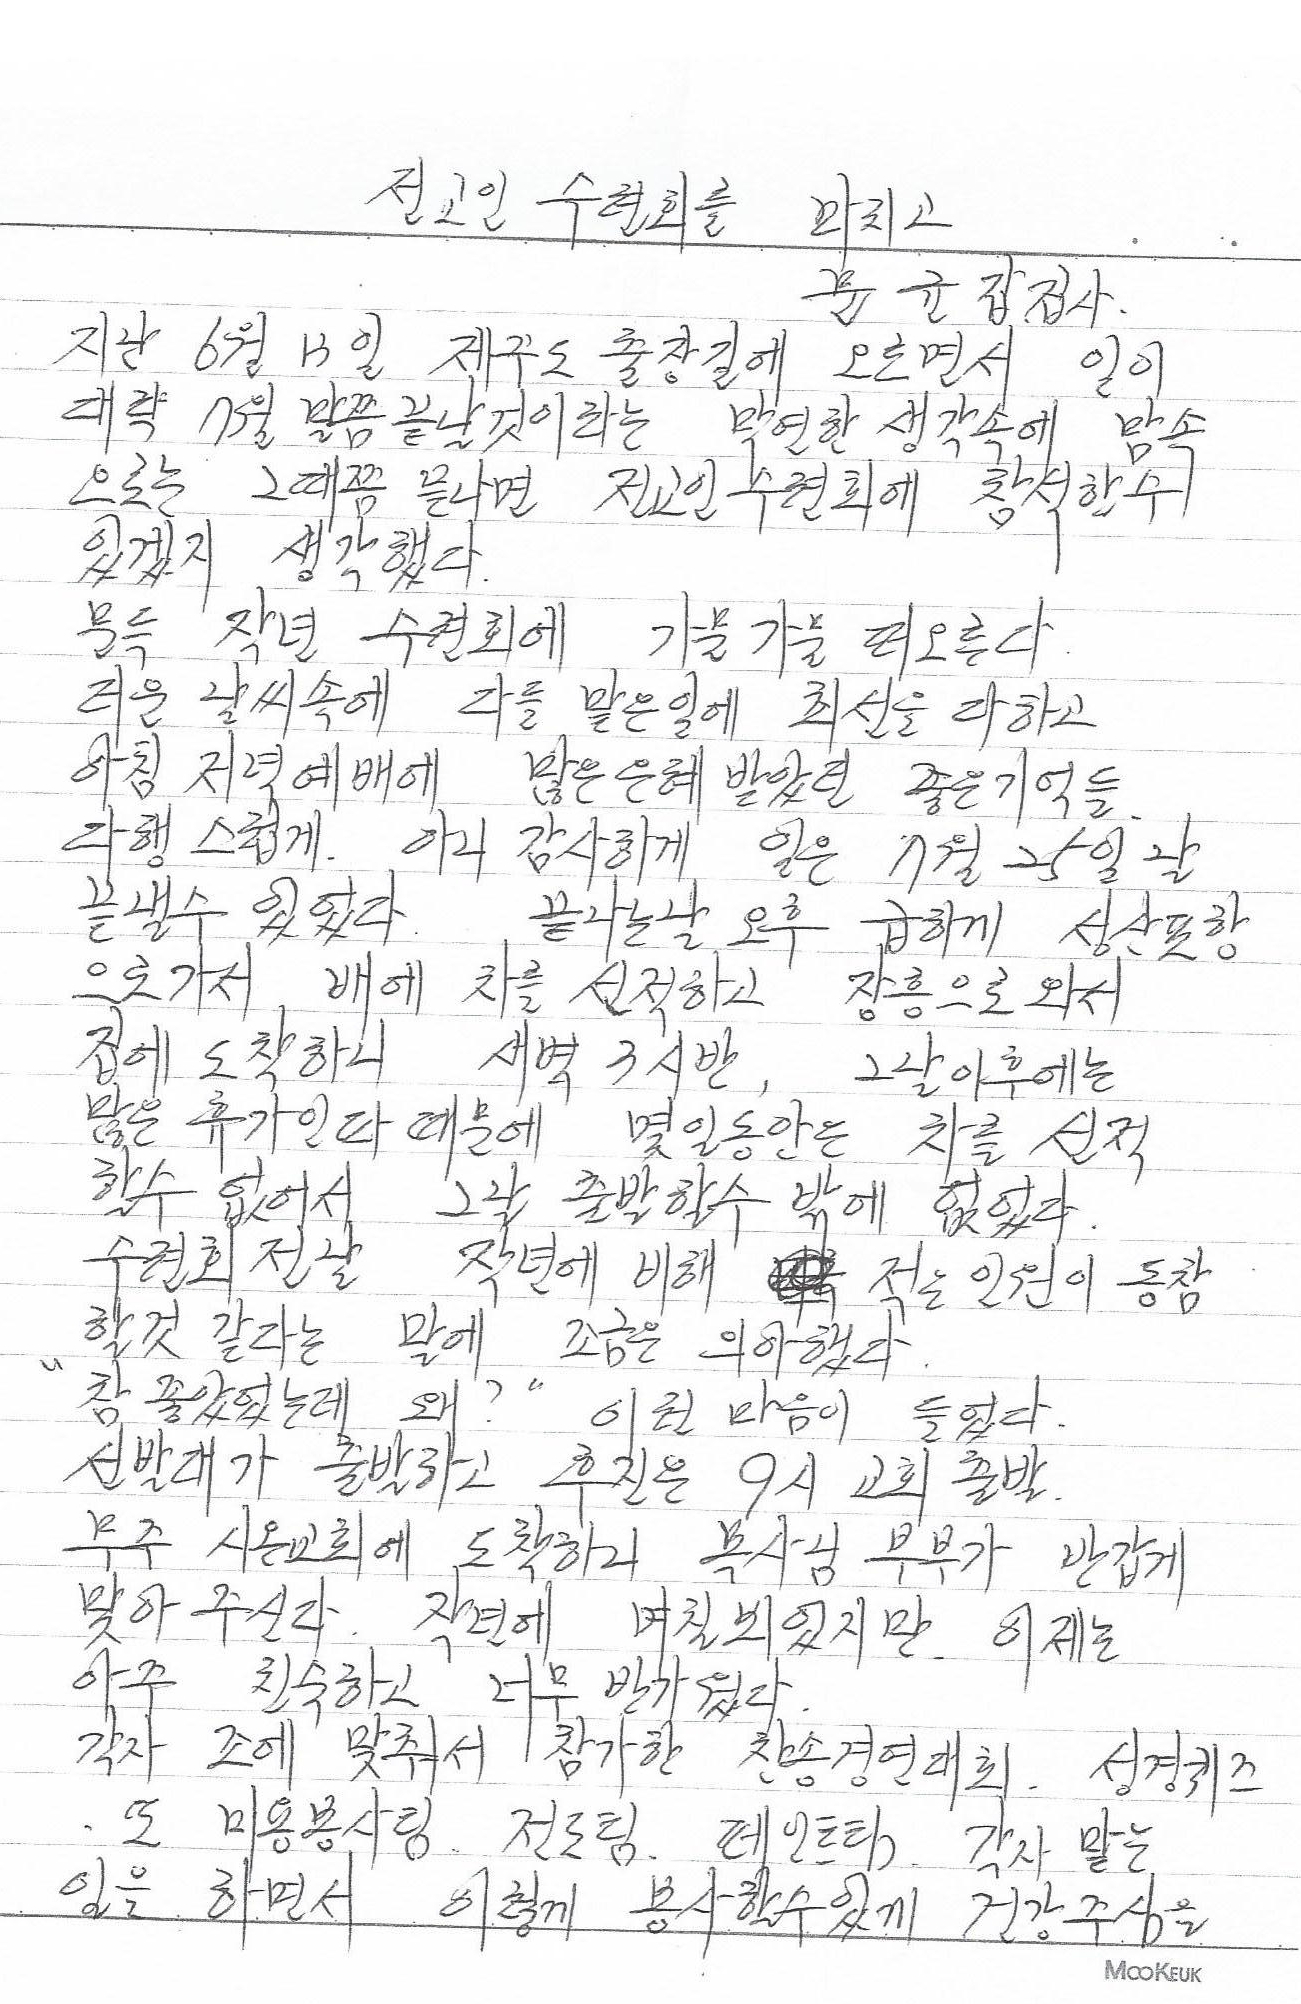 전교인 수련회를 마치고
문 균 잡집사.
지난 6월 13일 제주도 출장길에 오르면서 일이
대략 7월 말쯤끝날것이라는 막연한 생각속에 맘속
으로는 그때쯤 끝나면 전교인수련회에 참석할수
있겠지 생각했다.
문득 작년 수련회에 가물가물 떠오른다.
더운 날씨속에 다들 맡은일에 최선을 다하고
아침 저녁예배에 많은은혜 받았던 좋은기억들.
다행 스럽게. 아니 감사하게 일은 7월 25일날
끝낼수 있었다. 끝나는날 오후 급하게 성산포항
으로가서 배에 차를 선적하고 장흥으로 와서
집에 도착하니 새벽 3시반, 그날이후에는
많은 휴가인파 때문에 몇일동안은 차를 선적
할수 없어서 그날 출발할수 밖에 없었다.
수련회전날 작년에 비해 적은 인원이 동참
할것 같다는 말에 조금은 의아했다.
"참 좋았었는데 왜?" 이런 마음이 들었다.
선발대가 출발하고 후진은 9시 교회 출발.
무주 시온교회에 도착하니 목사님 부부가 반갑게
맞아 주신다. 작년에 며칠뵈었지만. 이제는
아주 친숙하고 너무 반가웠다.
각자 조에 맞춰서 참가한 찬송경연대회. 성경퀴즈
. 또 미용봉사팀. 전도팀. 페인트팀. 각자 맡는
일을 하면서 이렇게 봉사할수있게 건강주심을
MooKeuk